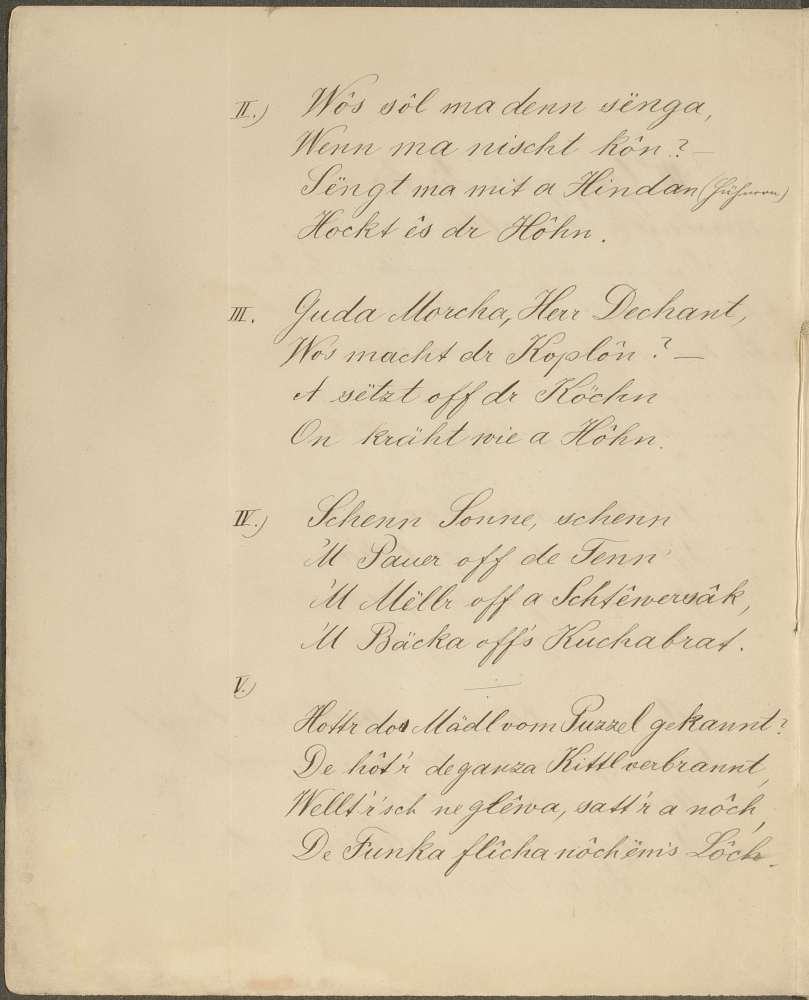 II.) Wôs sôl ma denn sënga,
Wenn ma nischt kôn? –
Sëngt ma mit a Hindan (Hühnern)
Hockt ês dr Hôhn.
III. Guda Morcha, Herr Dechant,
Wos macht dr Koplôn? –
A sëtzt off dr Köchn
On kräht wie a Hôhn.
IV.) Schenn Sonne, schenn
'M Pauer off de Tenn'
'M Mëllr off a Schtêwersâk,
'M Bäcka off's Kuchabrat.
V.)
Hottr dos Mädl vom Puzzel gekannt?
De hôt'r de ganza Kittl verbrannt,
Wellt'r'sch ne glêwa, satt'r a nôch,
De Funka flîcha nôch ëm's Lôch.